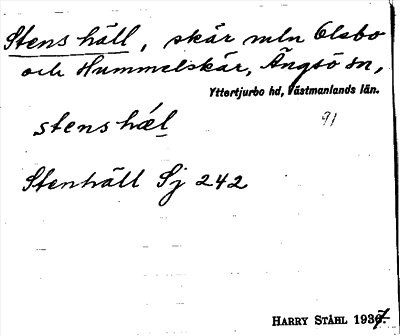 Stens häll, skär mln Olsbo
och Hummelskär, Ängsö sn,
Yttertjurbo hd, Västmanlands län.
stenshæ̀l 91
Stenhäll Sj 242
HARRY STÅHL 1937.